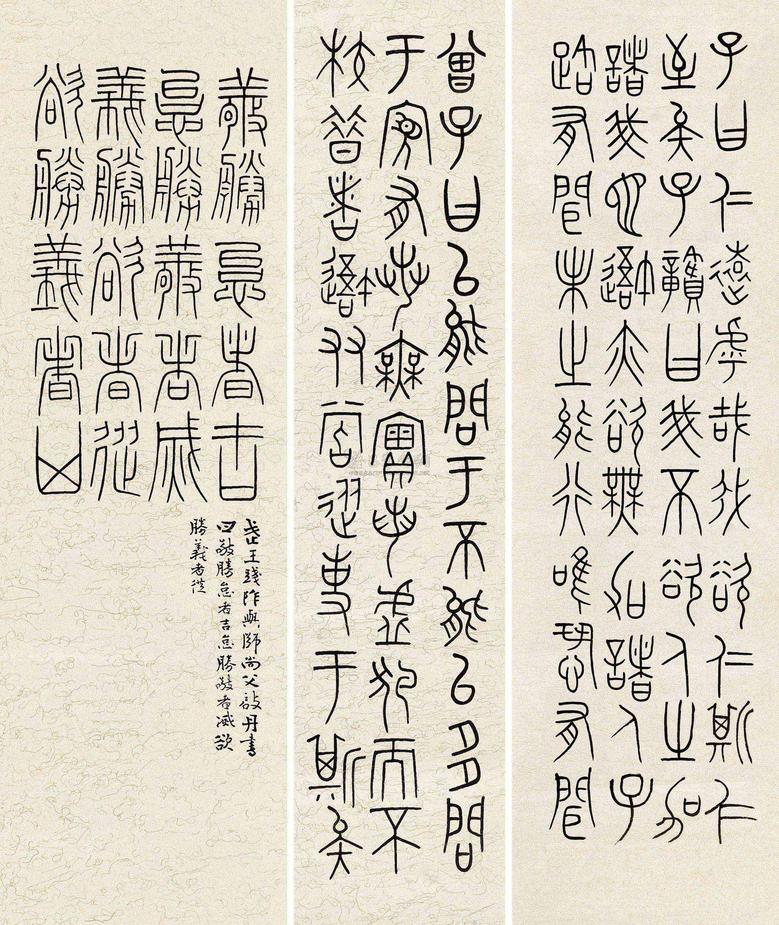 子曰仁遠乎哉我欲仁斯仁
至矣子贛曰我不欲人之加
諸我也吾亦欲無加諸人子
路有聞未之能行唯恐有聞
曾子曰以能問于不能以多問
于寡有若無實若虛犯而不
校昔者吾友嘗從事于斯矣
敬勝怠者吉
怠勝敬者滅
義勝欲者從
欲勝義者凶
武王踐阼與師尚父丹書
曰敬勝怠者吉怠勝敬者滅欲
勝義者從